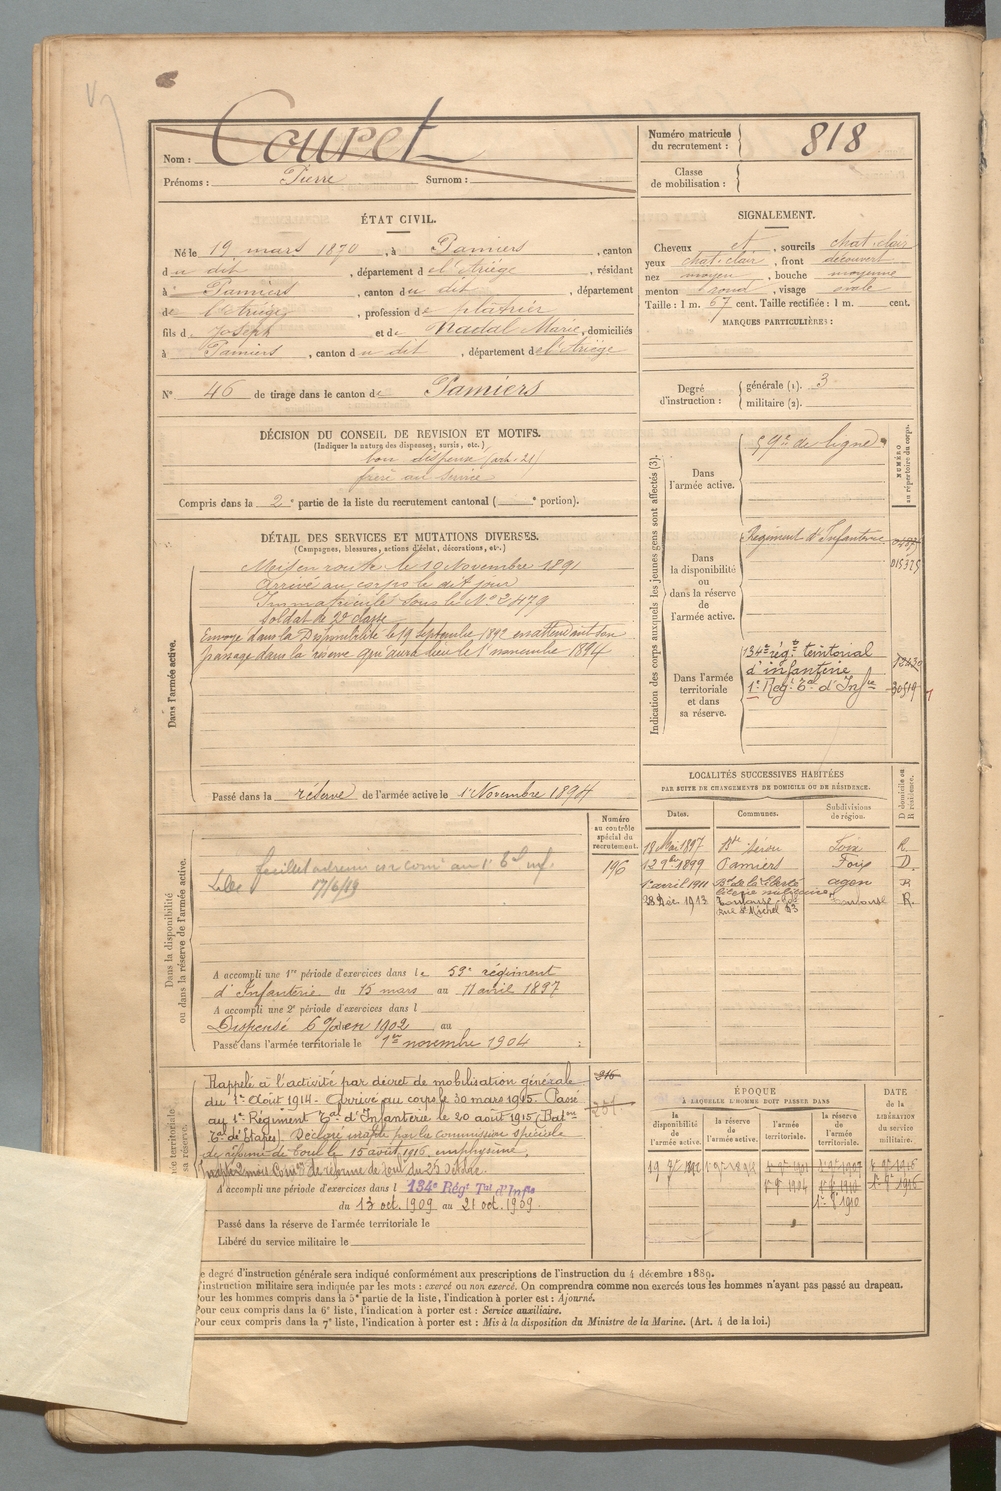 Nom : Couret
Prénoms : Pierre Surnom :
Numéro matricule du recrutement : 818
Classe de mobilisation :
ÉTAT CIVIL.
Né le 19 mars 1870, à Pamiers, canton
du dit, département de l'Ariège, résidant
à Pamiers, canton du dit, département
de l'Ariège, profession de plâtrier
fils de Joseph et de Nadal Marie, domiciliés
à Pamiers, canton du dit, département de l'Ariège
N° 46 de tirage dans le canton de Pamiers
SIGNALEMENT.
Cheveux et, sourcils chat. clair
yeux chat. clair, front découvert
nez moyen, bouche moyenne
menton rond, visage ovale
Taille : 1 m. 67 cent. Taille rectifiée : 1 m. cent.
MARQUES PARTICULIÈRES :
Degré d'instruction :
générale (1). 3
militaire (2).
DÉCISION DU CONSEIL DE REVISION ET MOTIFS.
(Indiquer la nature des dispenses, sursis, etc.)
bon dispensé (art. 21)
frère au service
Compris dans la 2e partie de la liste du recrutement cantonal ( e portion).
DÉTAIL DES SERVICES ET MUTATIONS DIVERSES.
(Campagnes, blessures, actions d'éclat, décorations, etc.)
Dans l'armée active.
Mis en route le 10 Novembre 1891
Arrivé au corps le dit jour
Immatriculé sous le N° 2479
Soldat de 2e classe
Envoyé dans la Disponibilité le 19 Septembre 1892 en attendant son
passage dans la réserve qui aura lieu le 1er novembre 1894
Passé dans la réserve de l'armée active le 1er Novembre 1894
Indication des corps auxquels les jeunes gens sont affectés (3).
NUMÉRO au répertoire du corps.
Dans l'armée active.
59e de ligne
Dans la disponibilité ou dans la réserve de l'armée active.
Régiment d'Infanterie
015325
Dans l'armée territoriale et dans sa réserve.
134e rég.t territorial
d'infanterie
1er Rég.t Tal d'Infie
12430
30519
LOCALITÉS SUCCESSIVES HABITÉES
PAR SUITE DE CHANGEMENTS DE DOMICILE OU DE RÉSIDENCE.
Dates. Communes. Subdivisions de région. D domicile ou R résidence.
18 Mai 1897 Foix R.
12 9bre 1899 Pamiers Foix D.
1er avril 1911 Bd de la Liberté agen R
28 Déc. 1913 Toulouse Toulouse R.
rue St Michel 53
Dans la disponibilité ou dans la réserve de l'armée active.
Numéro au contrôle spécial du recrutement.
196
17/6/19
A accompli une 1re période d'exercices dans le 59e régiment
d'Infanterie du 15 mars au 11 avril 1897
A accompli une 2e période d'exercices dans l
Dispensé en 1902 au
Passé dans l'armée territoriale le 1er novembre 1904
Rappelé à l'activité par décret de mobilisation générale
du 1er Août 1914. Arrivé au corps le 30 mars 1915. Passé
au 1er Régiment Tal d'Infanterie le 20 août 1915 (Baton
Tal d'Etapes). Déclaré inapte par la commission spéciale
de réforme de Toul le 15 août 1916, emphysème.
Inapte 2 mois Comon de réforme de Toul du 25 octbre.
A accompli une période d'exercices dans l 134e Régt Tial d'Infie
du 13 oct. 1909 au 21 oct. 1909.
Passé dans la réserve de l'armée territoriale le
Libéré du service militaire le
916
251
ÉPOQUE
A LAQUELLE L'HOMME DOIT PASSER DANS
la disponibilité de l'armée active. la réserve de l'armée active. l'armée territoriale. la réserve de l'armée territoriale.
DATE de la LIBÉRATION du service militaire.
19 7bre 1892
1er 9bre 1904
1er 8bre 1910
1er 8bre 1916
e degré d'instruction générale sera indiqué conformément aux prescriptions de l'instruction du 4 décembre 1889.
'instruction militaire sera indiquée par les mots : exercé ou non exercé. On comprendra comme non exercés tous les hommes n'ayant pas passé au drapeau.
Pour les hommes compris dans la 5e partie de la liste, l'indication à porter est : Ajourné.
Pour ceux compris dans la 6e liste, l'indication à porter est : Service auxiliaire.
Pour ceux compris dans la 7e liste, l'indication à porter est : Mis à la disposition du Ministre de la Marine. (Art. 4 de la loi.)